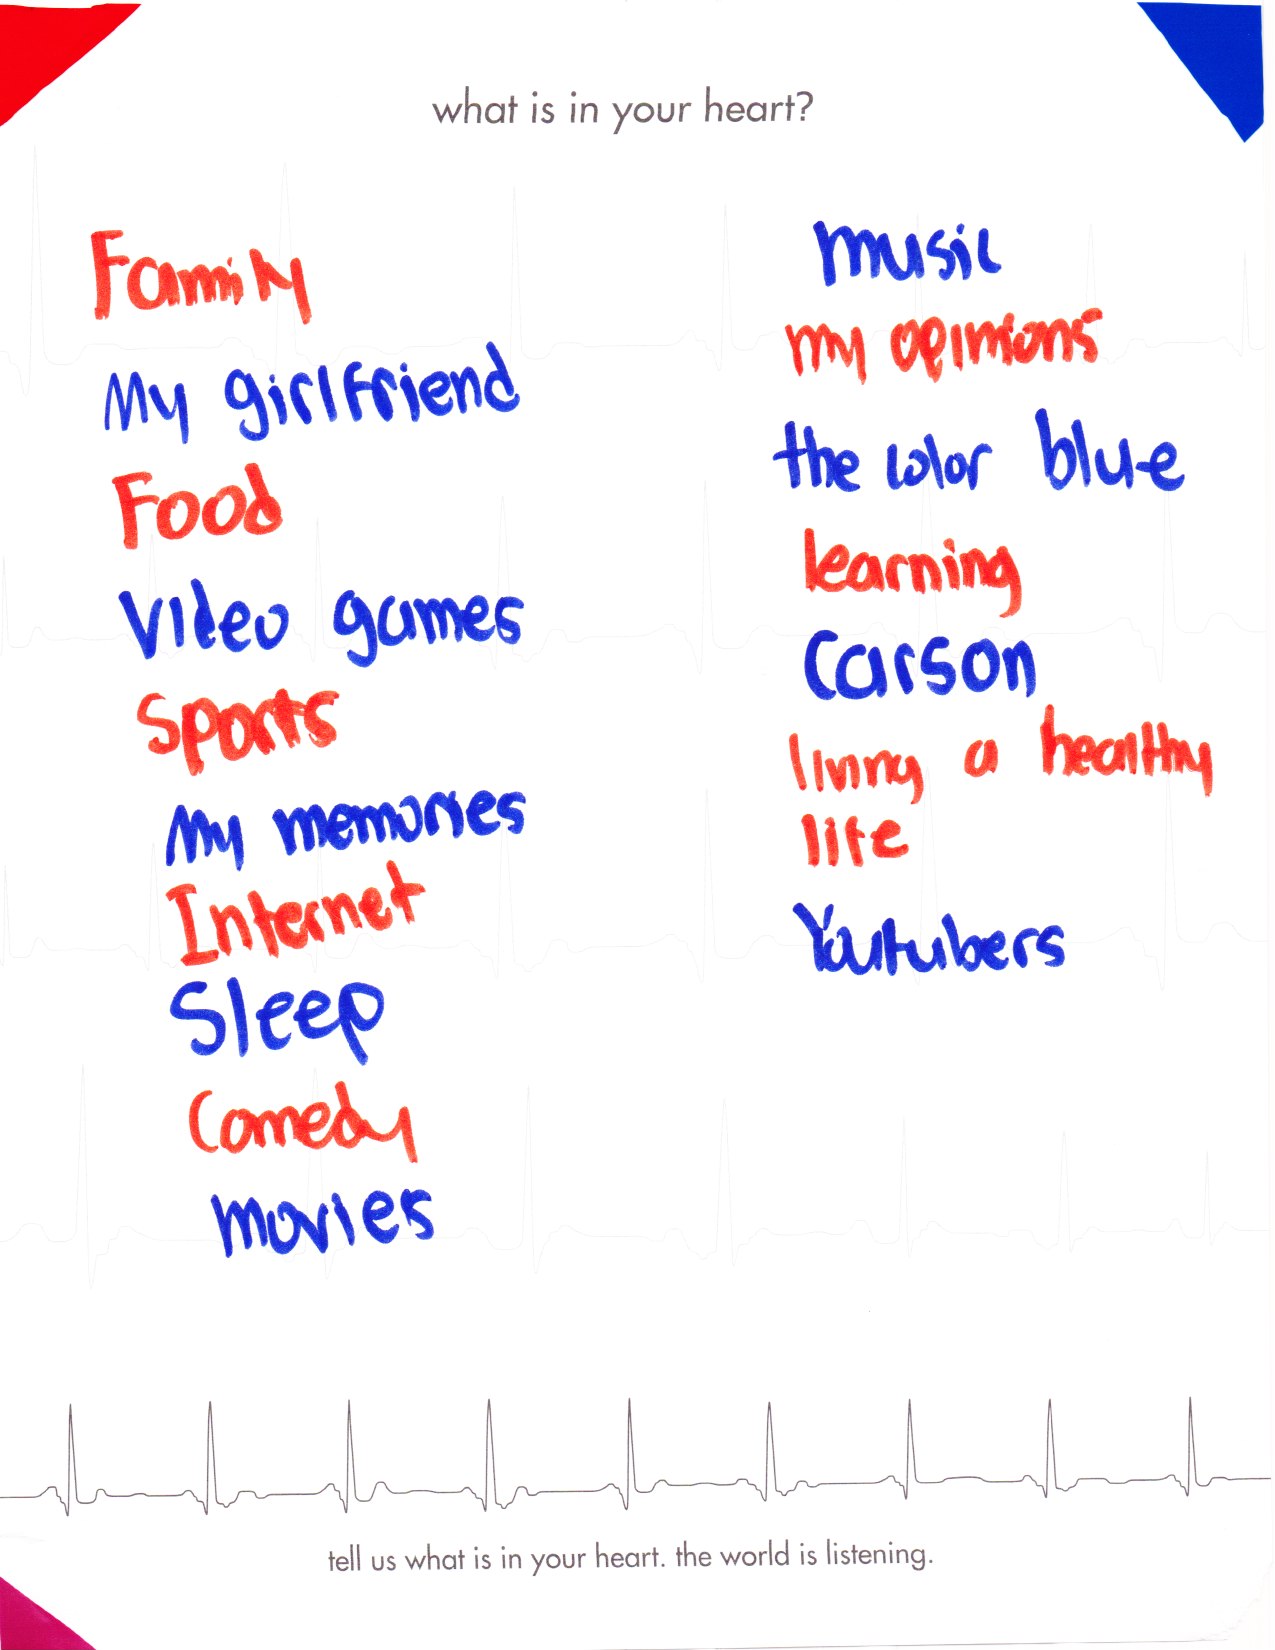 what is in your heart?
Family
My girlfriend
Food
Video games
Sports
My memories
Internet
Sleep
Comedy
movies
music
my opinions
the color blue
learning
Carson
living a healthy
life
Youtubers
tell us what is in your heart. the world is listening.